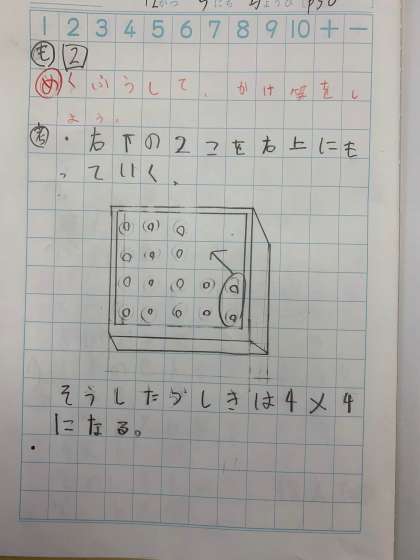 1 2 3 4 5 6 7 8 9 10 + −
も 2
め くふうして、かけ算をし
よう。
考 ・右下の2こを右上にも
っていく。
そうしたらしきは4×4
になる。